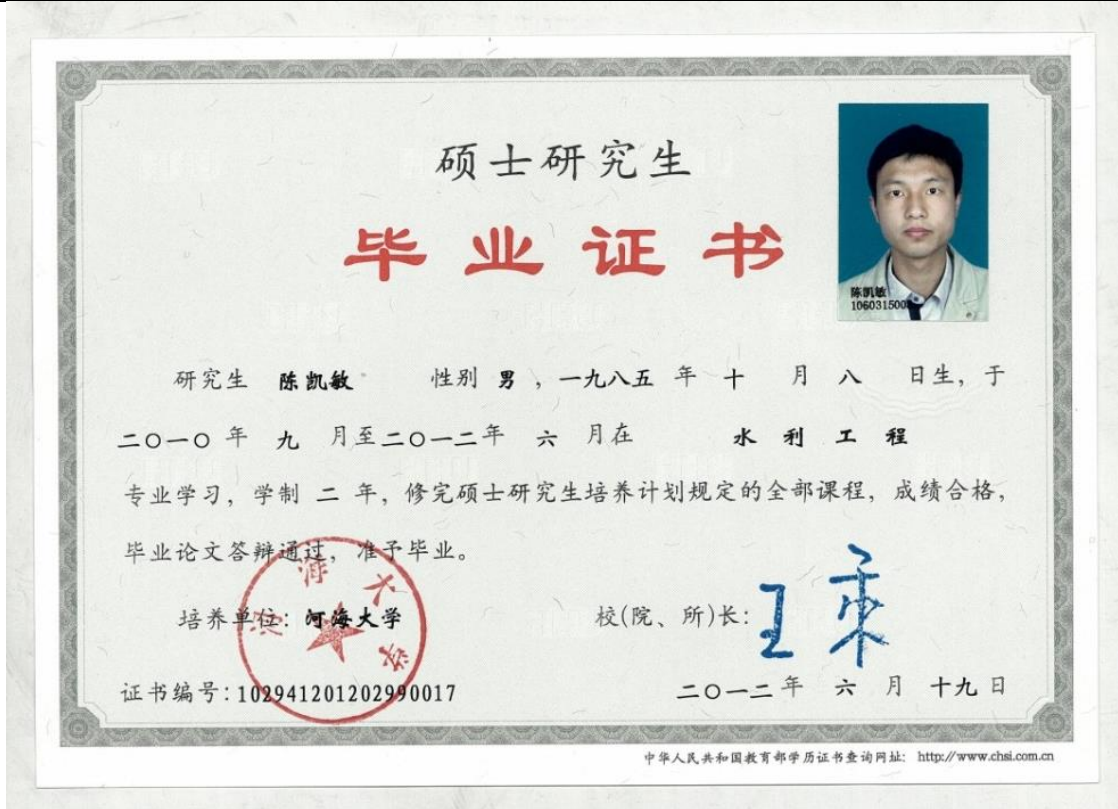 硕士研究生
毕业证书
陈凯敏
106031500
研究生 陈凯敏 性别 男 ，一九八五 年 十 月 八 日生，于
二〇一〇 年 九 月至二〇一二年 六 月在 水 利 工 程
专业学习，学制 二 年，修完硕士研究生培养计划规定的全部课程，成绩合格，
毕业论文答辩通过，准予毕业。
河海大学
培养单位：河海大学 校(院、所)长：王乘
证书编号：102941201202990017 二〇一二年 六 月 十九日
中华人民共和国教育部学历证书查询网址： http://www.chsi.com.cn